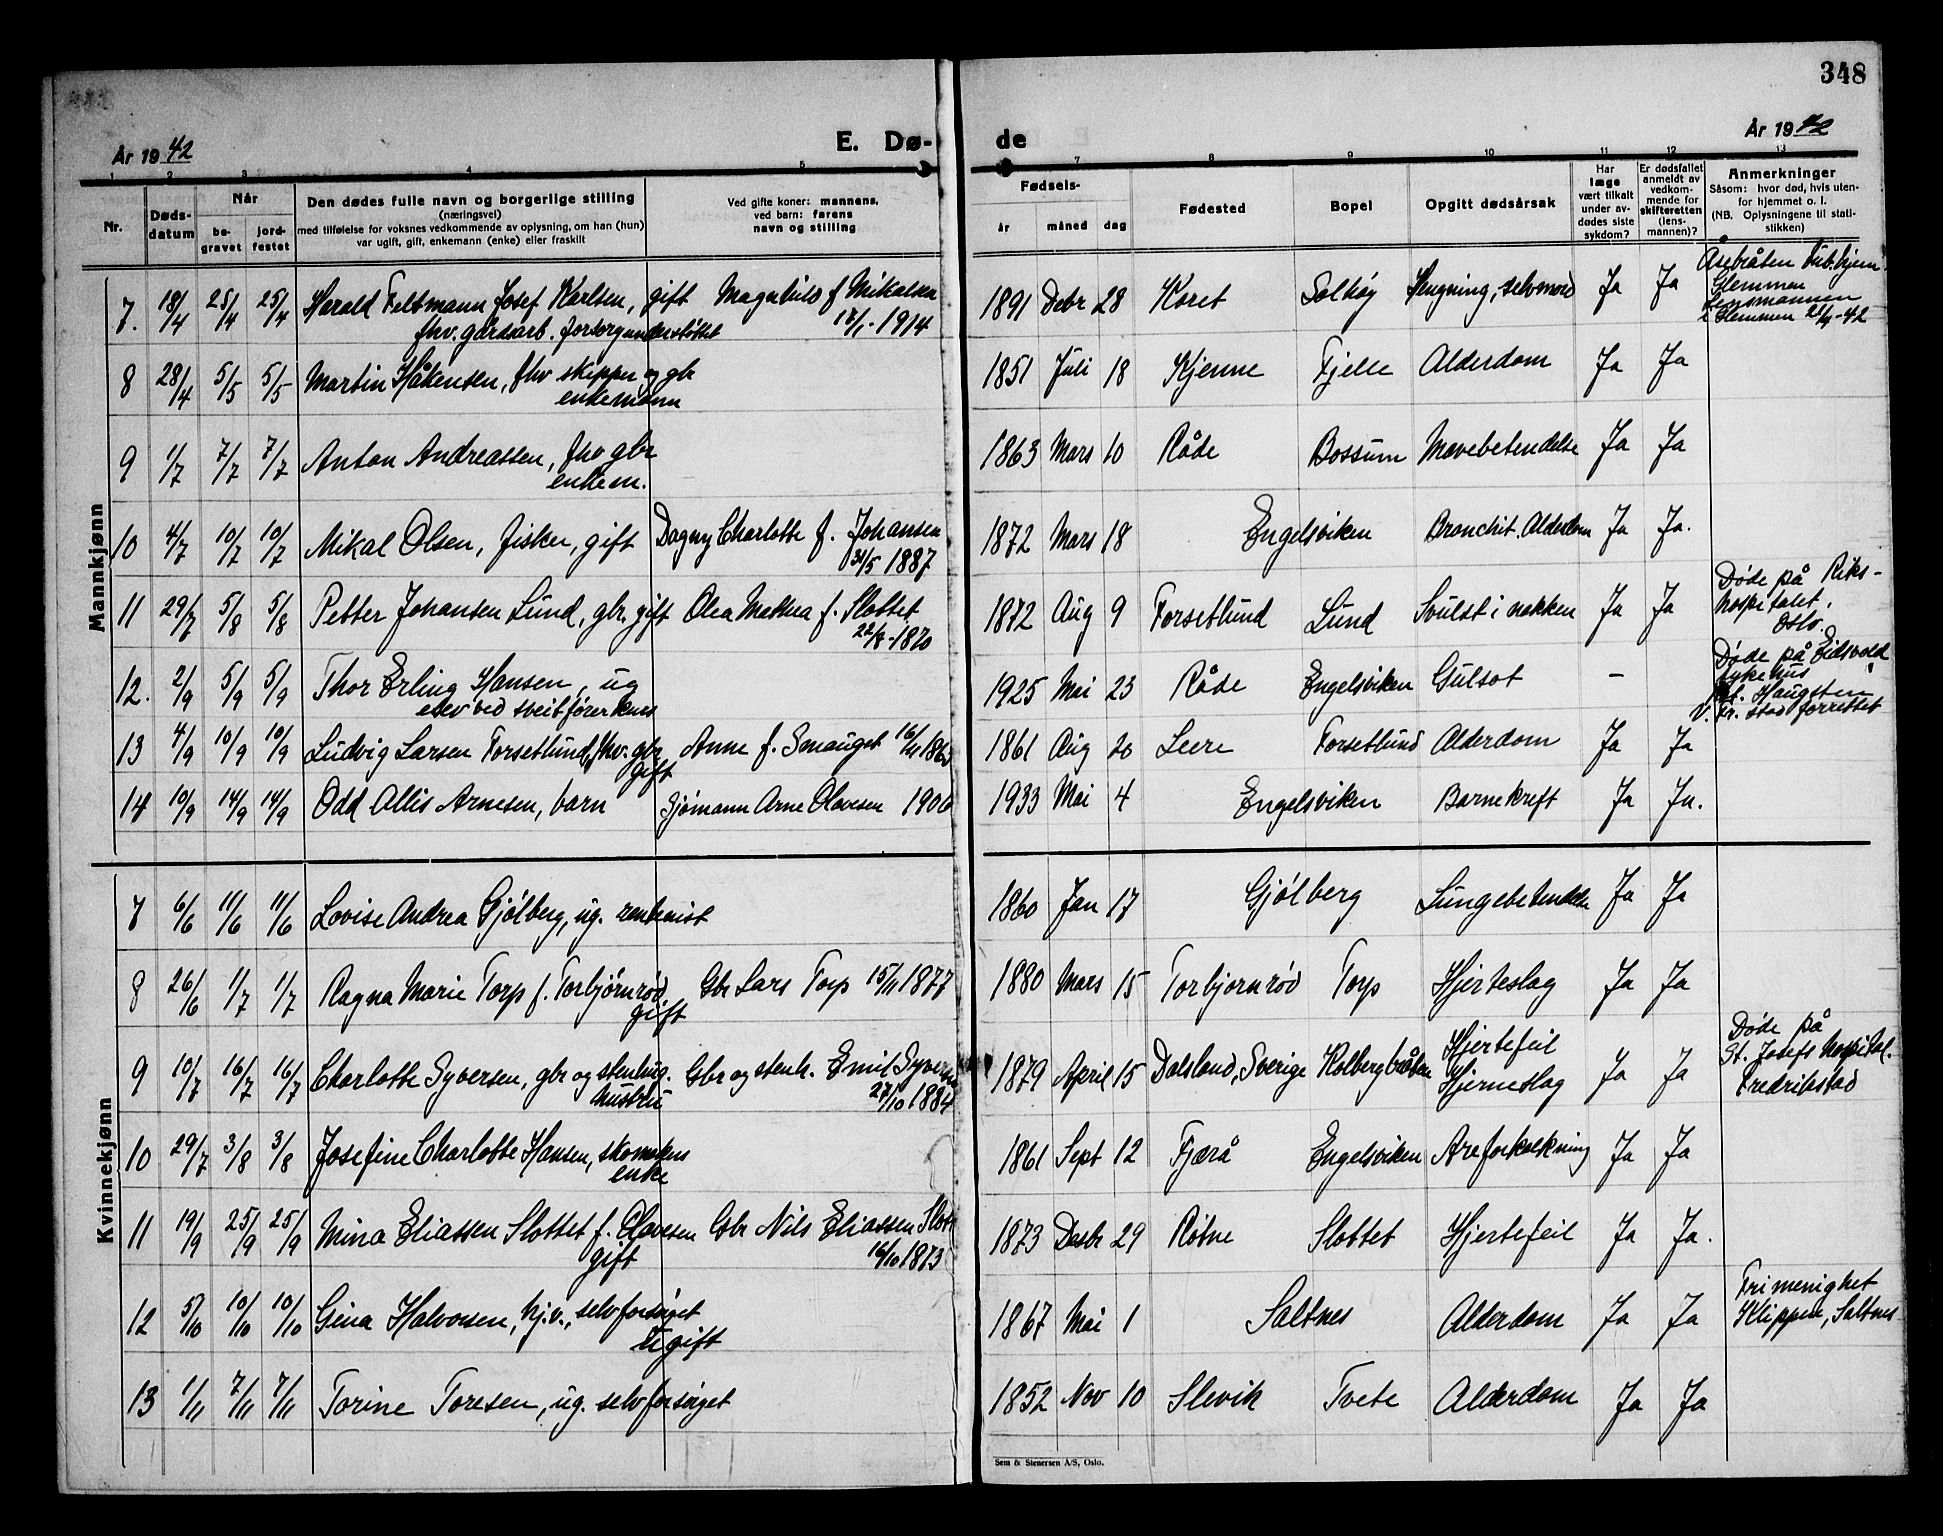 348
År 1942
E. Dø-
de
År 1942
1 2 3 4 5 7 8 9 10 11 12 13
Nr.
Døds-
datum
Når
be-
gravet
jord-
festet
Den dødes fulle navn og borgerlige stilling
(næringsvei)
med tilføielse for voksnes vedkommende av oplysning, om han (hun)
var ugift, gift, enkemann (enke) eller fraskilt
Ved gifte koner: mannens,
ved barn: farens
navn og stilling
Fødsels-
år måned dag
Fødested
Bopel
Opgitt dødsårsak
Har
læge
vært tilkalt
under av-
dødes siste
sykdom?
Er dødsfallet
anmeldt av
vedkom-
mende for
skifteretten
(lens-
mannen)?
Anmerkninger
Såsom: hvor død, hvis uten-
for hjemmet o. l.
(NB. Oplysningene til stati-
stikken)
Mannkjønn
7. 18/4 25/4 25/4 Harald Feltmann Josef Karlsen, gift f. Mikalsen 1891 Debr 28 Karet Solhøy Hengning, selvmord Ja Ja
fhv. gårdsarb. forsorgunderstøttet 17/1-1914
Glemmen
Lensmannen
i Glemmen 25/4-42
8 28/4 5/5 5/5 Martin Håkensen, fhv skipper og gbr 1851 Juli 18 Kjenne Fjelle Alderdom Ja Ja
enkemann
9 1/7 7/7 7/7 Anton Andreassen, fhv gbr 1863 Mars 10 Råde Bossum Mavebetendelse Ja Ja
enkem.
10 4/7 10/7 10/7 Mikal Olsen, fisker, gift Dagny Charlotte f. Johansen 1872 Mars 18 Engelsviken Bronchit. Alderdom Ja Ja.
31/5 1887
11 29/7 5/8 5/8 Petter Johansen Lund, gbr. gift Olea Mathea f. Slottet 1872 Aug 9 Forsetlund Lund Svulst i nakken Ja Ja
22/8-1870
Døde på Riks-
hospitalet,
Oslo.
12. 2/9 5/9 5/9 Thor Erling Hansen, ug 1925 Mai 23 Råde Engelsviken Gulsot –
elev ved
Døde på Eidsvold
sykehus
Haugsten
v. Fr. stad forrettet
13 4/9 10/9 10/9 Ludvig Larsen Forsetlund, fhv. gbr Anne f. Smauget 1861 Aug 20 Leere Forsetlund Alderdom Ja Ja
gift
14 10/9 14/9 14/9 Odd Allis Arnesen, barn Sjømann Arne Olavesen 1906 1933 Mai 4 Engelsviken Barnekreft Ja Ja.
Kvinnekjønn
7 6/6 11/6 11/6 Lovise Andrea Gjølberg, ug. rentenist 1860 Jan 17 Gjølberg Lungebetendelse Ja Ja
8 26/6 1/7 1/7 Ragna Marie Torp f. Torbjørnrød. Gbr Lars Torp 15/11 1877 1880 Mars 15 Torbjørnrød Torp Hjerteslag Ja Ja
gift
9 10/7 16/7 16/7 Charlotte Syversen, gbr og stenhug. Gbr og stenh. Emil Syversen 1879 April 15 Dalsland, Sverige Kolbergbråten Hjertefeil Ja Ja
hustru 27/10 1884 Hjerneslag
Døde på
St. Josefs hospital.
Fredrikstad
10 29/7 3/8 3/8 Josefine Charlotte Hansen, skomakers 1861 Sept 12 Fjærå Engelsviken Areforkalkning Ja Ja
enke
11 19/9 25/9 25/9 Mina Eliassen Slottet f. Olavesen Gbr Nils Eliassen Slott 1873 Desbr 29 Røtne Slottet Hjertefeil Ja Ja.
gift 16/10 1873
12 5/10 10/10 10/10 Gina Halvorsen, hj.v., selvforsørget 1867 Mai 1 Saltnes Alderdom Ja Ja
Ugift
Frimenighet
Klippen, Saltnes
13 1/11 7/11 7/11 Torine Toresen, ug. selvforsørget 1852 Nov 10 Slevik Tvete Alderdom Ja Ja
Sem & Stenersen A/S, Oslo.